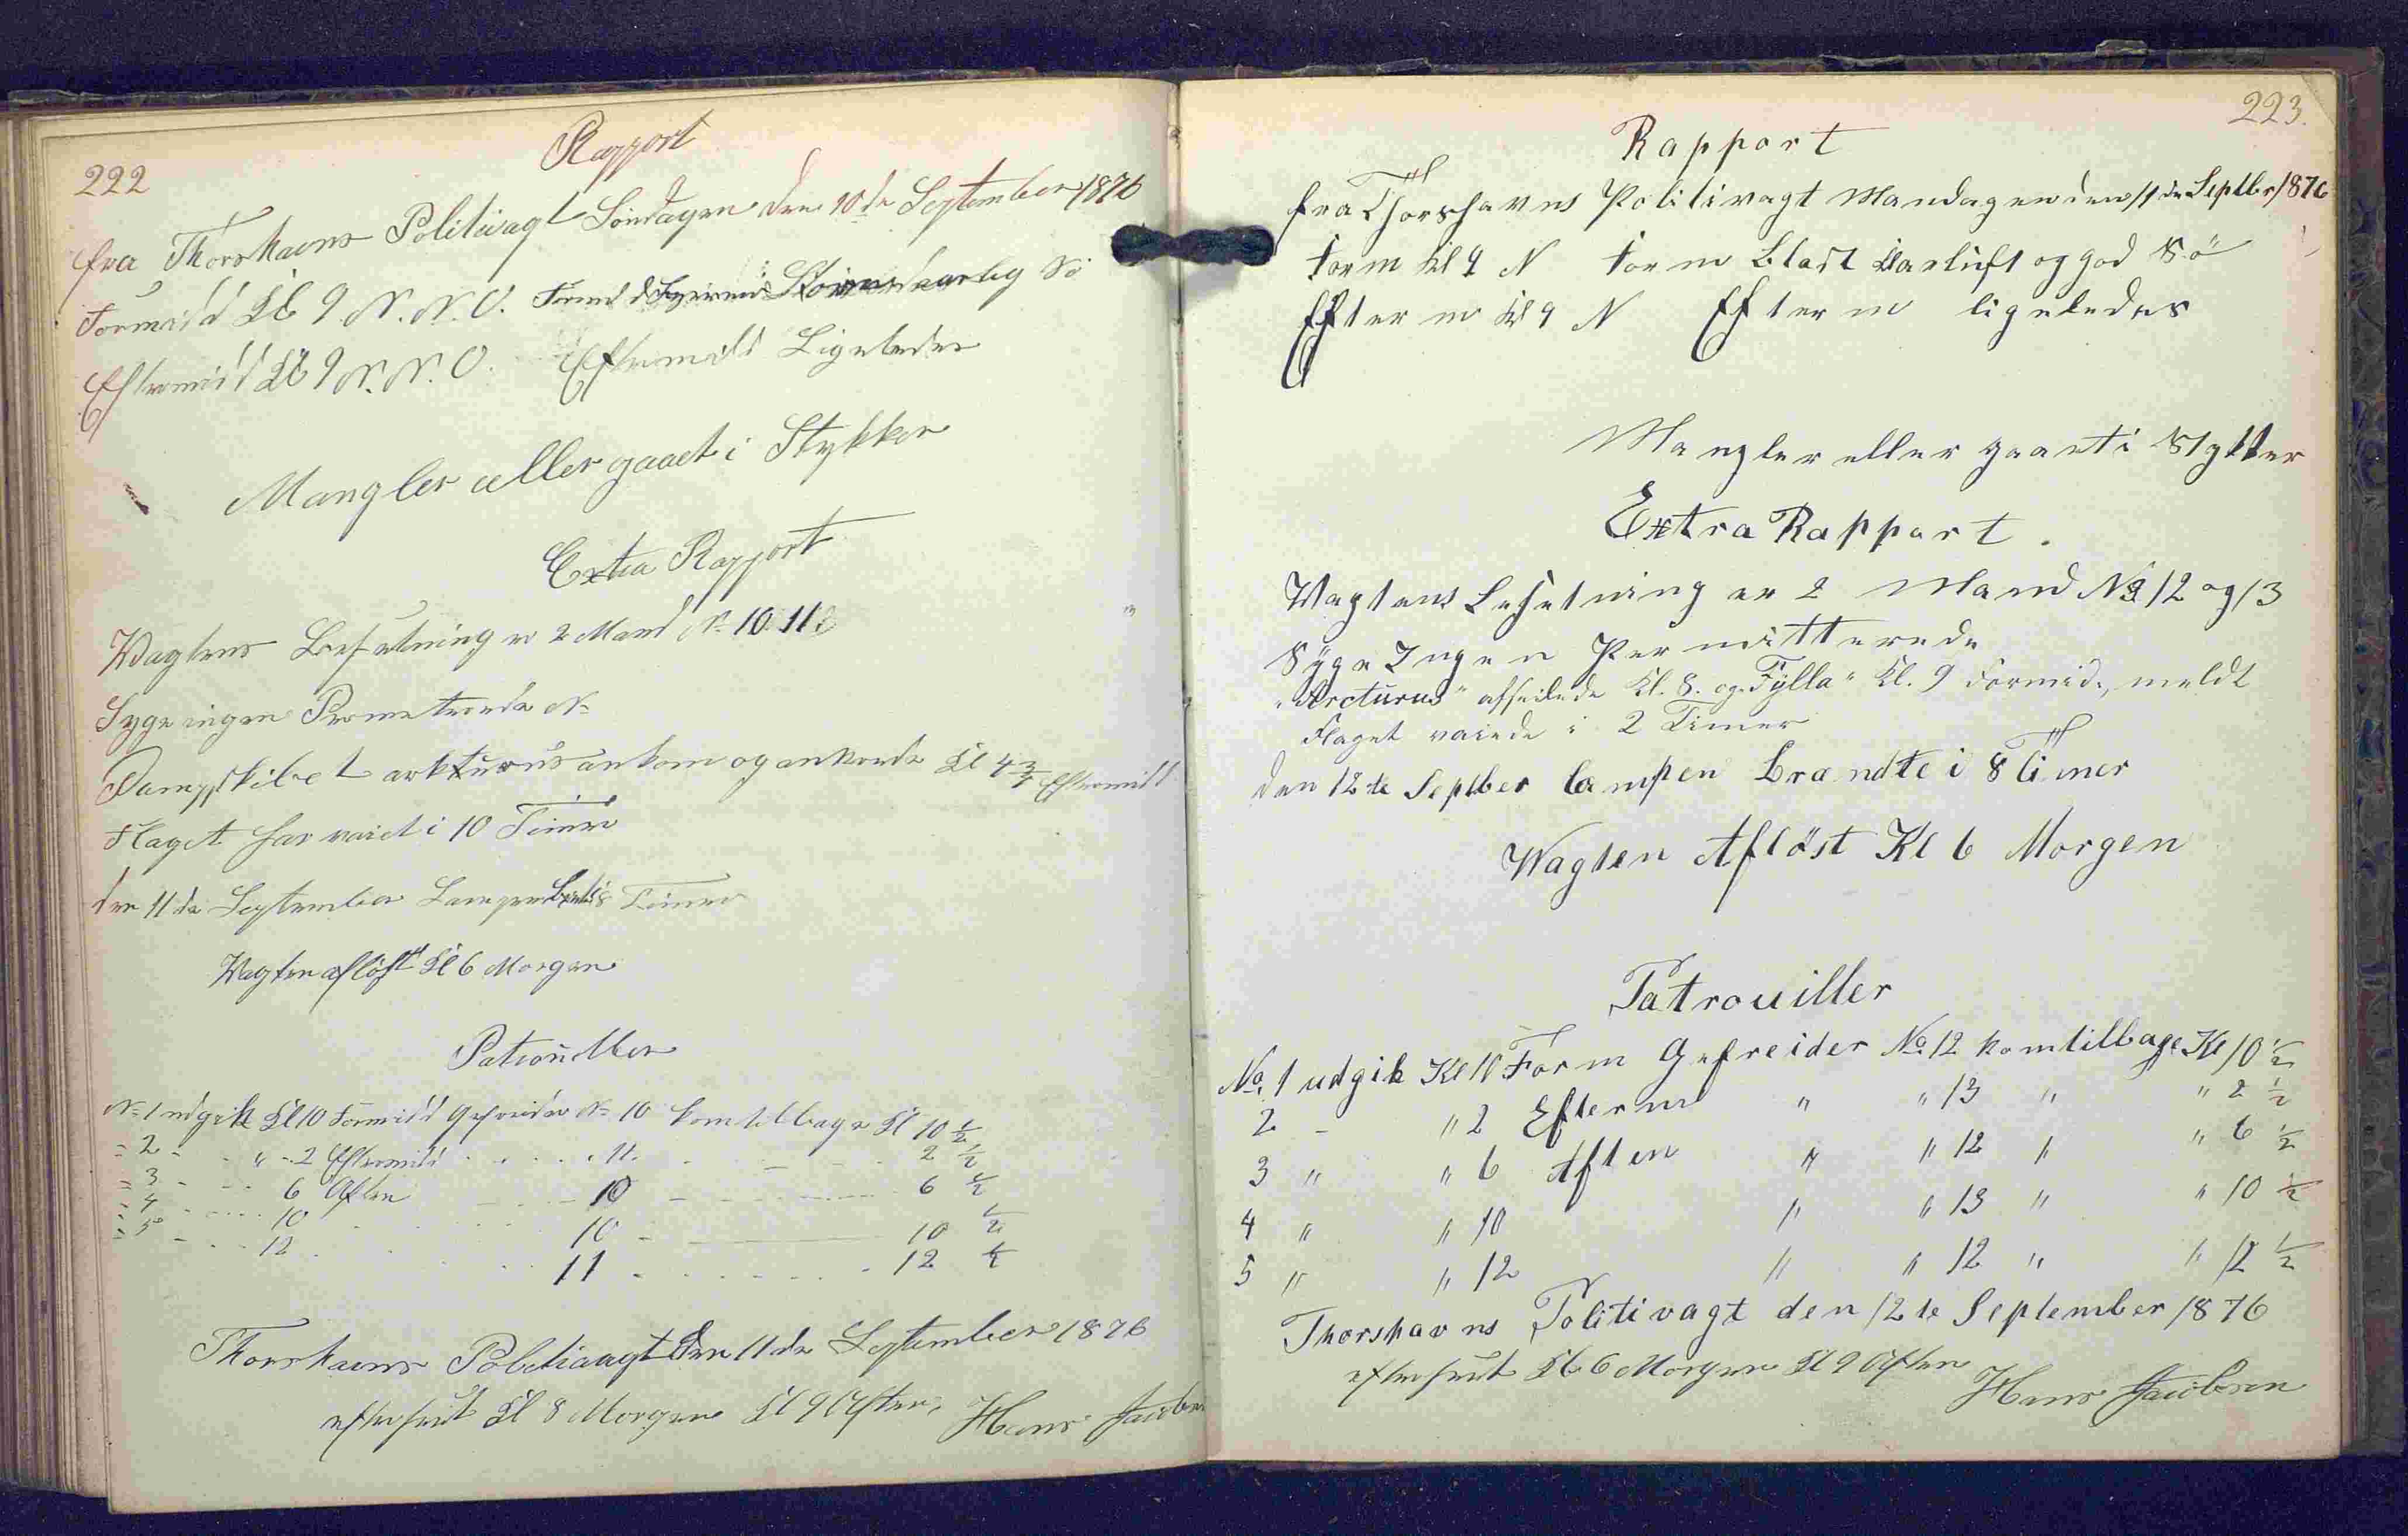 222
Rapport
fra Thorshavns Politivagt Söndagen den 10de September 1876
Formidd Kl 9 N.N.O. Formd Sö
Eftermidd Kl 9 N.N.O. Eftermidd Ligeledes
Mangler eller gaaet i Stykker
Extra Rapport
Vagtens Besetning er 2 Mand No 10 11
Syge ingen No
Dampskibet arkturus ankom og ankrede Kl 4 3/4 Eftermidd
Flaget har vaiet i 10 Timer
den 11de September Lampen 8 Timer
Vagten aflöst Kl 6 Morgen
Patrouller
No 1 udgik Kl 10 Formidd Gefreider No 10 kom tilbage Kl 10 1/2
" 2 - - " - 2 Eftermidd - - - - 11 - - - 2 1/2
" 3 - - - 6 Aften - - - 10 - - - 6 1/2
" 4 - - - 10 - - - 10 - - - 10 1/2
" 5 - - - 12 - - - 11 - - - 12 1/2
Thorshavns Politivagt den 11de September 1876
efterseet Kl 8 Morgen Kl 9 Aften, Hans Jacobsen
223.
Rapport
fra Thorshavns Politivagt Mandagen den 11de Septbr 1876
Form Kl 9 N Form Blast Klarluft og god Sö
Efterm Kl 9 N Efterm ligeledes
Mangler eller gaaet i Stykker
Extra Rapport.
Vagtens Besetning er 2 Mand No 12 og 13
Syge Ingen Permitterede
"Arcturus" afseilede Kl. 8. og "Fylla" Kl. 9 Formid., meldt
Flaget vaiede i 2 Timer
den 12te Septber Lampen Brændte i 8 Timer
Wagten Aflöst Kl 6 Morgen
Patrouiller
No. 1 udgik Kl 10 Form Gefreider No 12 kom tilbage Kl 10 1/2
2 - " 2 Efterm " " 13 " " 2 1/2
3 " " 6 Aften " " 12 " " 6 1/2
4 " " 10 " " 13 " " 10 1/2
5 " " 12 " " 12 " " 12 1/2
Thorshavns Politivagt den 12te September 1876
efterseet Kl 6 Morgen Kl 9 Aften
Hans Jacobsen